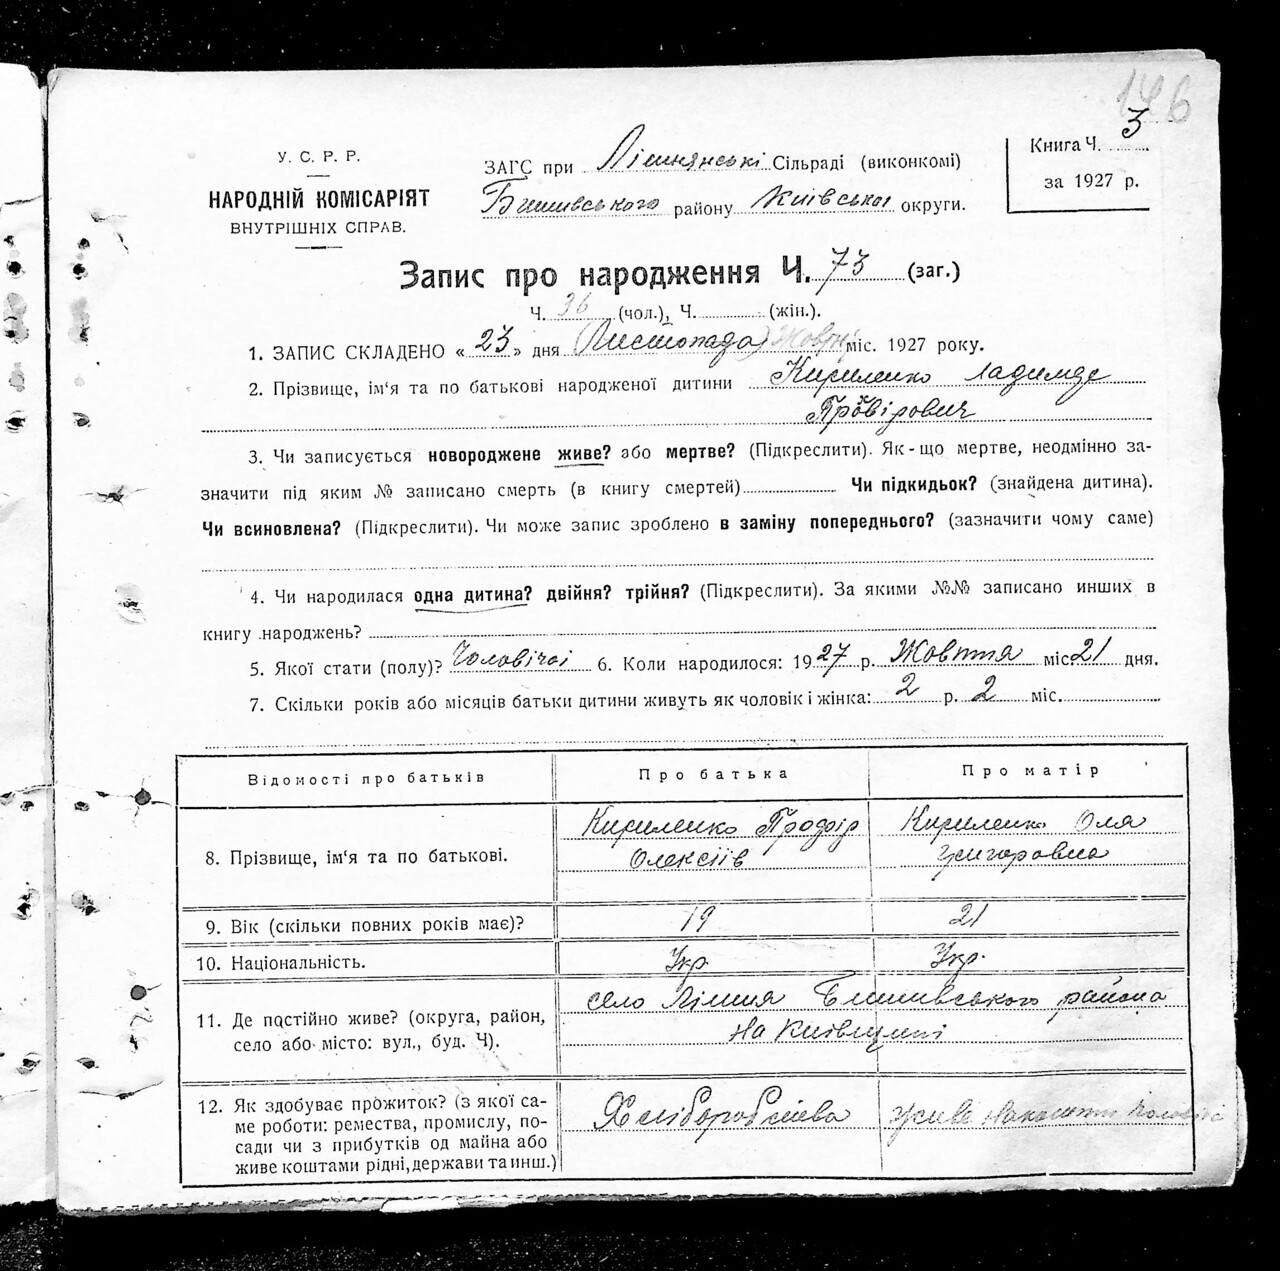 146
У. С. Р. Р.
НАРОДНІЙ КОМІСАРІЯТ
ВНУТРІШНІХ СПРАВ.
ЗАГС при Лішнянські Сільраді (виконкомі)
Бишивського району Київської округи.
Книга Ч. 3
за 1927 р.
Запис про народження Ч. 73 (заг.)
Ч. 36 (чол.), Ч. (жін.).
1. ЗАПИС СКЛАДЕНО « 23 » дня (Листопада) міс. 1927 року.
2. Прізвище, ім'я та по батькові народженої дитини Кириленко
3. Чи записується новороджене живе? або мертве? (Підкреслити). Як-що мертве, неодмінно за-
значити під яким № записано смерть (в книгу смертей) Чи підкидьок? (знайдена дитина).
Чи всиновлена? (Підкреслити). Чи може запис зроблено в заміну попереднього? (зазначити чому саме)
4. Чи народилася одна дитина? двійня? трійня? (Підкреслити). За якими №№ записано инших в
книгу народжень?
5. Якої стати (полу)? Чоловічої 6. Коли народилося: 1927 р. Жовтня міс 21 дня.
7. Скільки років або місяців батьки дитини живуть як чоловік і жінка: 2 р. 2 міс.
Відомості про батьків Про батька Про матір
8. Прізвище, ім'я та по батькові. Кириленко Профір Кириленко Оля
Олексіїв Григоровна
9. Вік (скільки повних років має)? 19 21
10. Національність. Укр Укр.
11. Де постійно живе? (округа, район, село Лішня Бишивського района
село або місто: вул., буд. Ч). на Київщині
12. Як здобуває прожиток? (з якої са-
ме роботи: ремества, промислу, по-
сади чи з прибутків од майна або
живе коштами рідні, держави та инш.)